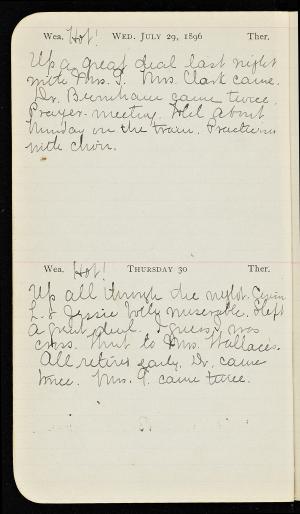 Wea. Hot! WED. JULY 29, 1896 Ther.
Up a great deal last night
with Mrs. G. Mrs. Clark came.
Dr. Burnham came twice.
Prayer-meeting. Told about
Sunday on the train. Practicing
with choir.
Wea. Hot! THURSDAY 30 Ther.
Up all through the night.
L. & Jessie both miserable. Slept
a great deal. I guess I was
cross. Went to Mrs. Wallace's.
All retired early. Dr. came
twice. Mrs. G. came twice.